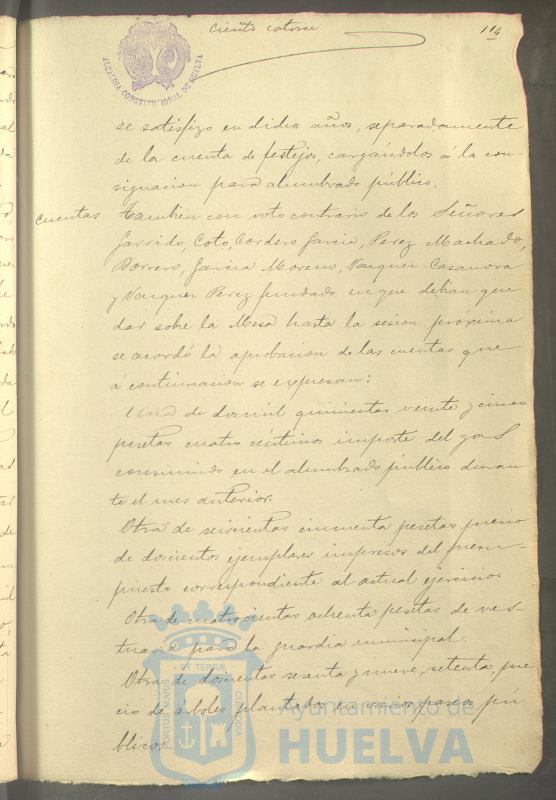 ciento catorce
114
ALCALDIA CONSTITUCIONAL DE HUELVA
se satisfizo en dichos años, separadamente
de la cuenta de festejos, cargándolos á la con-
signacion para alumbrado público.
Cuentas
Tambien con voto contrario de los Señores
Garrido, Coto, Cordero Garcia, Perez Machado,
Borrero, Garcia Moreno, Vazquez Casanova
y Vazquez Perez fundado en que debian que
dar sobre la Mesa hasta la sesion próxima
se acordó la aprobacion de las cuentas que
á continuacion se expresan:
Una de dosmil quinientas veinte y cinco
pesetas cuatro céntimos importe del gas
consumido en el alumbrado público duran
te el mes anterior.
Otra de seiscientas cincuenta pesetas precio
de doscientos ejemplares impresos del presu-
puesto correspondiente al actual ejercicio
Otra de cuatrocientas ochenta pesetas de ves-
tuario para la guardia municipal.
Otra de doscientas sesenta y nueve, setenta, pre
cio de árboles plantados en varios paseos pú
blicos.
PORTUS MARIS ET TERRAE CUSTODIA
Ayuntamiento de
HUELVA